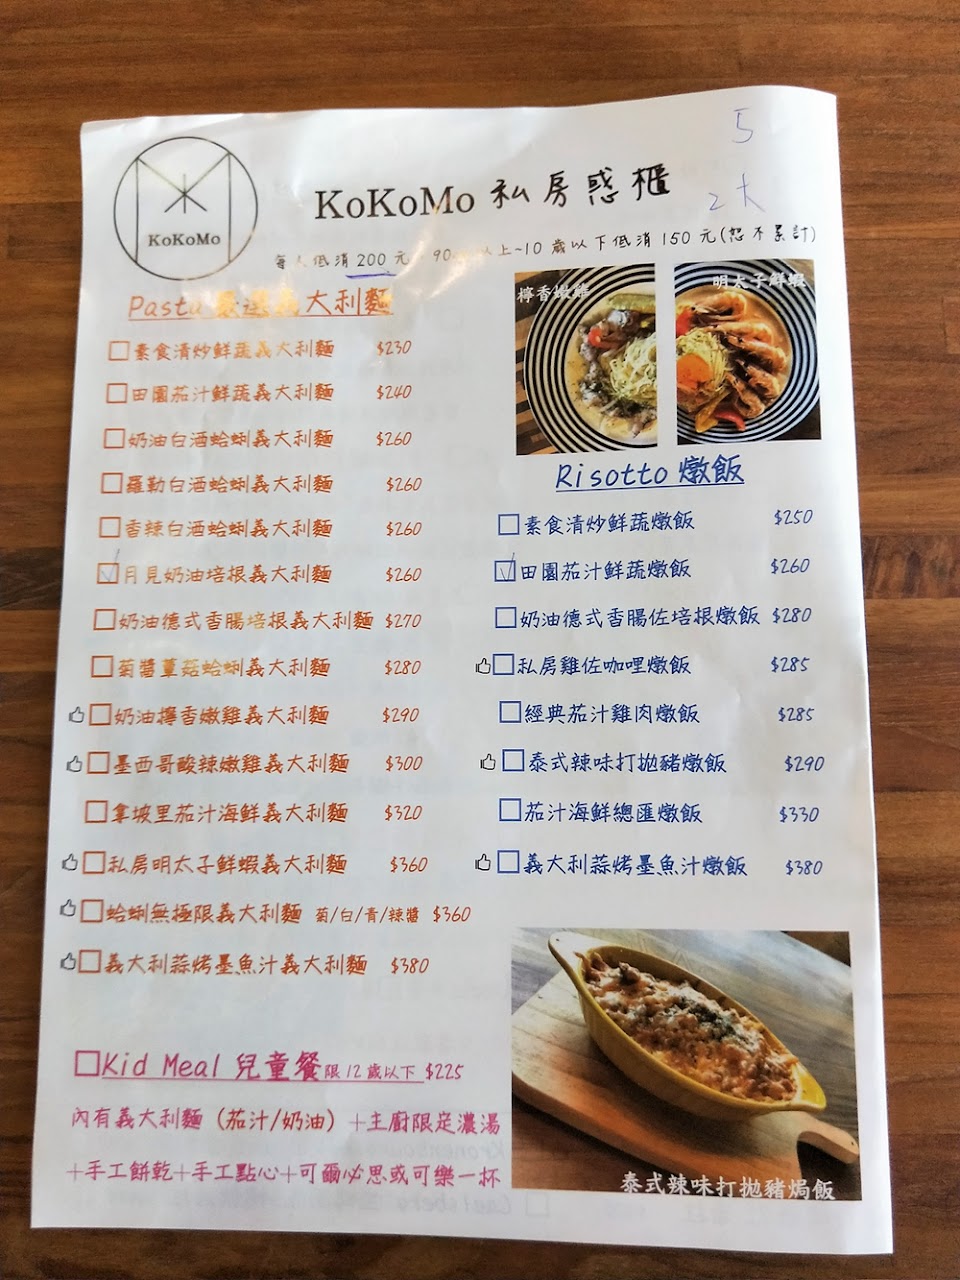 5
2大
KoKoMo
KoKoMo 私房惑櫃
每人低消200元 90 以上~10歲以下低消150元(恕不累計)
Pasta 嚴選義大利麵
素食清炒鮮蔬義大利麵 $230
田園茄汁鮮蔬義大利麵 $240
奶油白酒蛤蜊義大利麵 $260
羅勒白酒蛤蜊義大利麵 $260
香辣白酒蛤蜊義大利麵 $260
月見奶油培根義大利麵 $260
奶油德式香腸培根義大利麵 $270
菊醬蕈菇蛤蜊義大利麵 $280
奶油檸香嫩雞義大利麵 $290
墨西哥酸辣嫩雞義大利麵 $300
拿坡里茄汁海鮮義大利麵 $320
私房明太子鮮蝦義大利麵 $360
蛤蜊無極限義大利麵 菊/白/青/辣醬 $360
義大利蒜烤墨魚汁義大利麵 $380
Kid Meal 兒童餐限12歲以下 $225
內有義大利麵（茄汁/奶油）+主廚限定濃湯
+手工餅乾+手工點心+可爾必思或可樂一杯
檸香嫩雞
明太子鮮蝦
Risotto 燉飯
素食清炒鮮蔬燉飯 $250
田園茄汁鮮蔬燉飯 $260
奶油德式香腸佐培根燉飯 $280
私房雞佐咖哩燉飯 $285
經典茄汁雞肉燉飯 $285
泰式辣味打拋豬燉飯 $290
茄汁海鮮總匯燉飯 $330
義大利蒜烤墨魚汁燉飯 $380
泰式辣味打拋豬焗飯